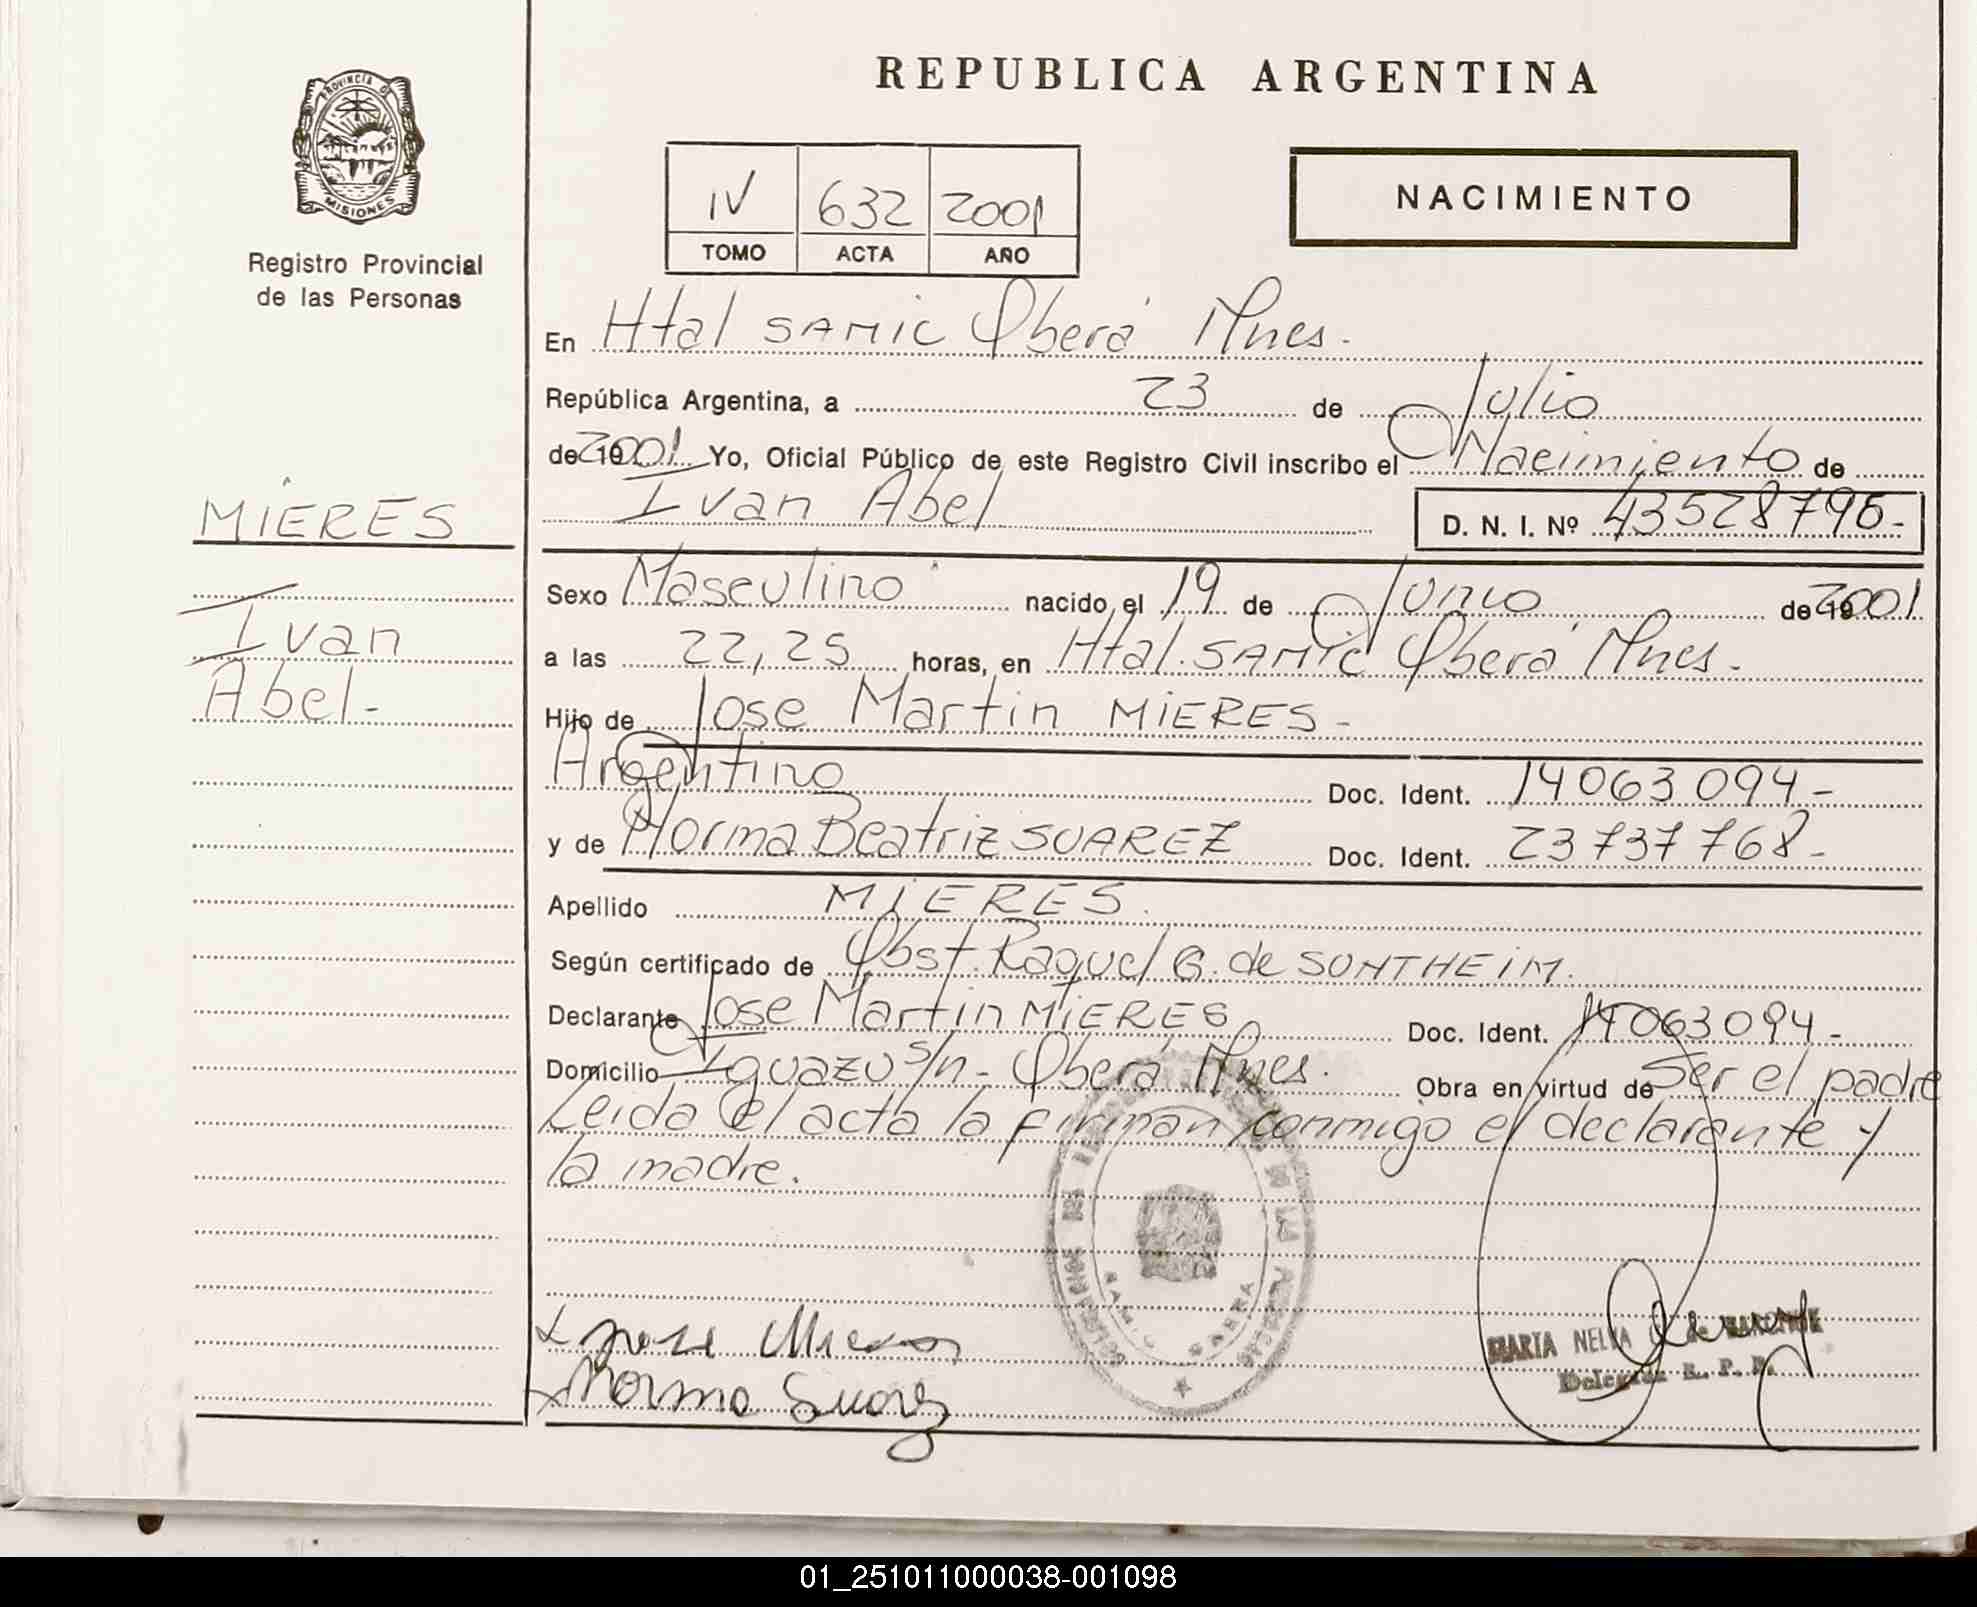 PROVINCIA DE
MISIONES
Registro Provincial
de las Personas
REPUBLICA ARGENTINA
NACIMIENTO
IV 632 2001
TOMO ACTA AÑO
En Htal SAMIC Oberá Mnes.
República Argentina, a 23 de Julio
de 19 2001 Yo, Oficial Público de este Registro Civil inscribo el Nacimiento de
Ivan Abel D. N. I. Nº 43528796-
MIERES
Ivan
Abel-
Sexo Masculino nacido, el 19 de Junio de 19 2001
a las 22,25 horas, en Htal. SAMIC Oberá Mnes.
Hijo de Jose Martin MIERES-
Argentino Doc. Ident. 14063094-
y de Norma Beatriz SUAREZ Doc. Ident. 23737768-
Apellido MIERES.
Según certificado de Obst. Raquel G. de SONTHEIM.
Declarante Jose Martin MIERES Doc. Ident. 14063094-
Domicilio Iguazu s/n- Oberá Mnes. Obra en virtud de Ser el padre
Leida el acta la firman conmigo el declarante y
la madre.
x Jose Mieres
x Norma Suarez
MARIA NELVA de
Delegada R. P. P.
01_251011000038-001098